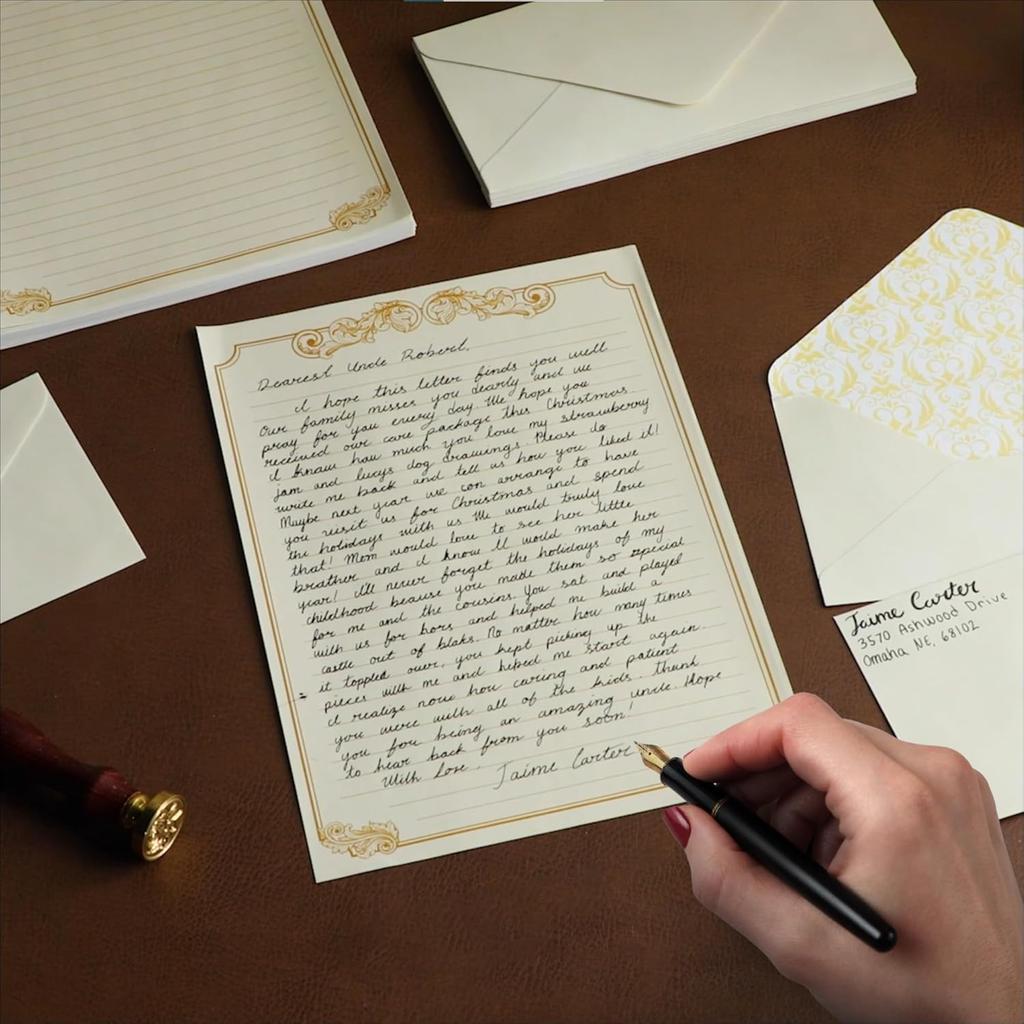 Dearest Uncle Robert,
I hope this letter finds you well
Our family misses you dearly and we
pray for you every day. We hope you
received our care package this Christmas.
I know how much you love my strawberry
jam and lucys dog drawings. Please do
write me back and tell us how you liked it!
Maybe next year we can arrange to have
you visit us for Christmas and spend
the holidays with us We would truly love
that! Mom would love to see her little
brother and I know it would make her
year! I'll never forget the holidays of my
childhood because you made them so special
for me and the cousins. You sat and played
with us for hors and helped me build a
castle out of bloks. No matter how many times
it toppled over, you kept picking up the
pieces with me and helped me start again.
I realize now how caring and patient
you were with all of the kids. Thank
you for being an amazing uncle. Hope
to hear back from you soon!
With Love, Jaime Carter
Jaime Carter
3570 Ashwood Drive
Omaha NE, 68102